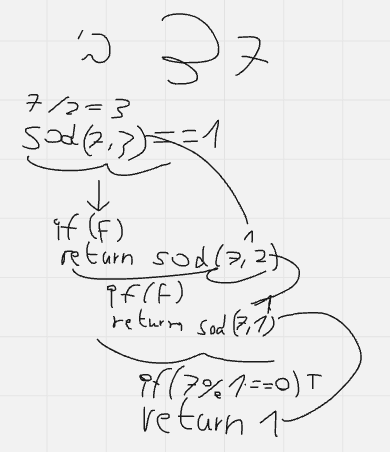 7
7/2=3
sod(7,3)==1
if(F)
1
return sod(7,2)
if(F)
1
return sod(7,1)
if(7%1==0)T
return 1